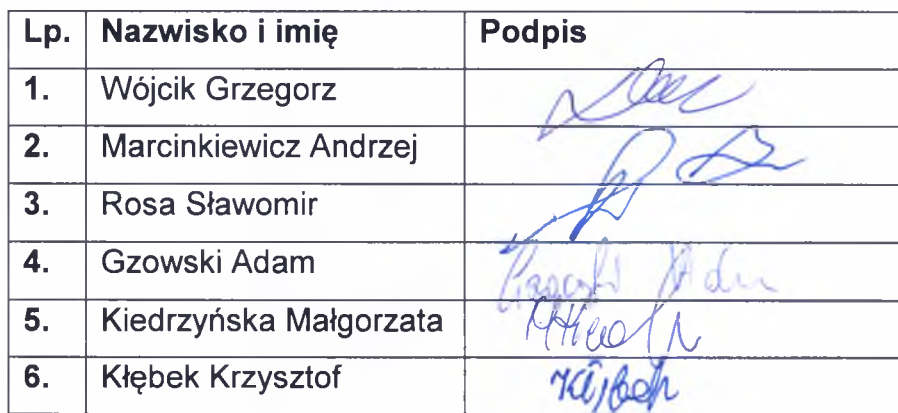 Lp. Nazwisko i imię Podpis
1. Wójcik Grzegorz
2. Marcinkiewicz Andrzej
3. Rosa Sławomir
4. Gzowski Adam Adam
5. Kiedrzyńska Małgorzata
6. Kłębek Krzysztof